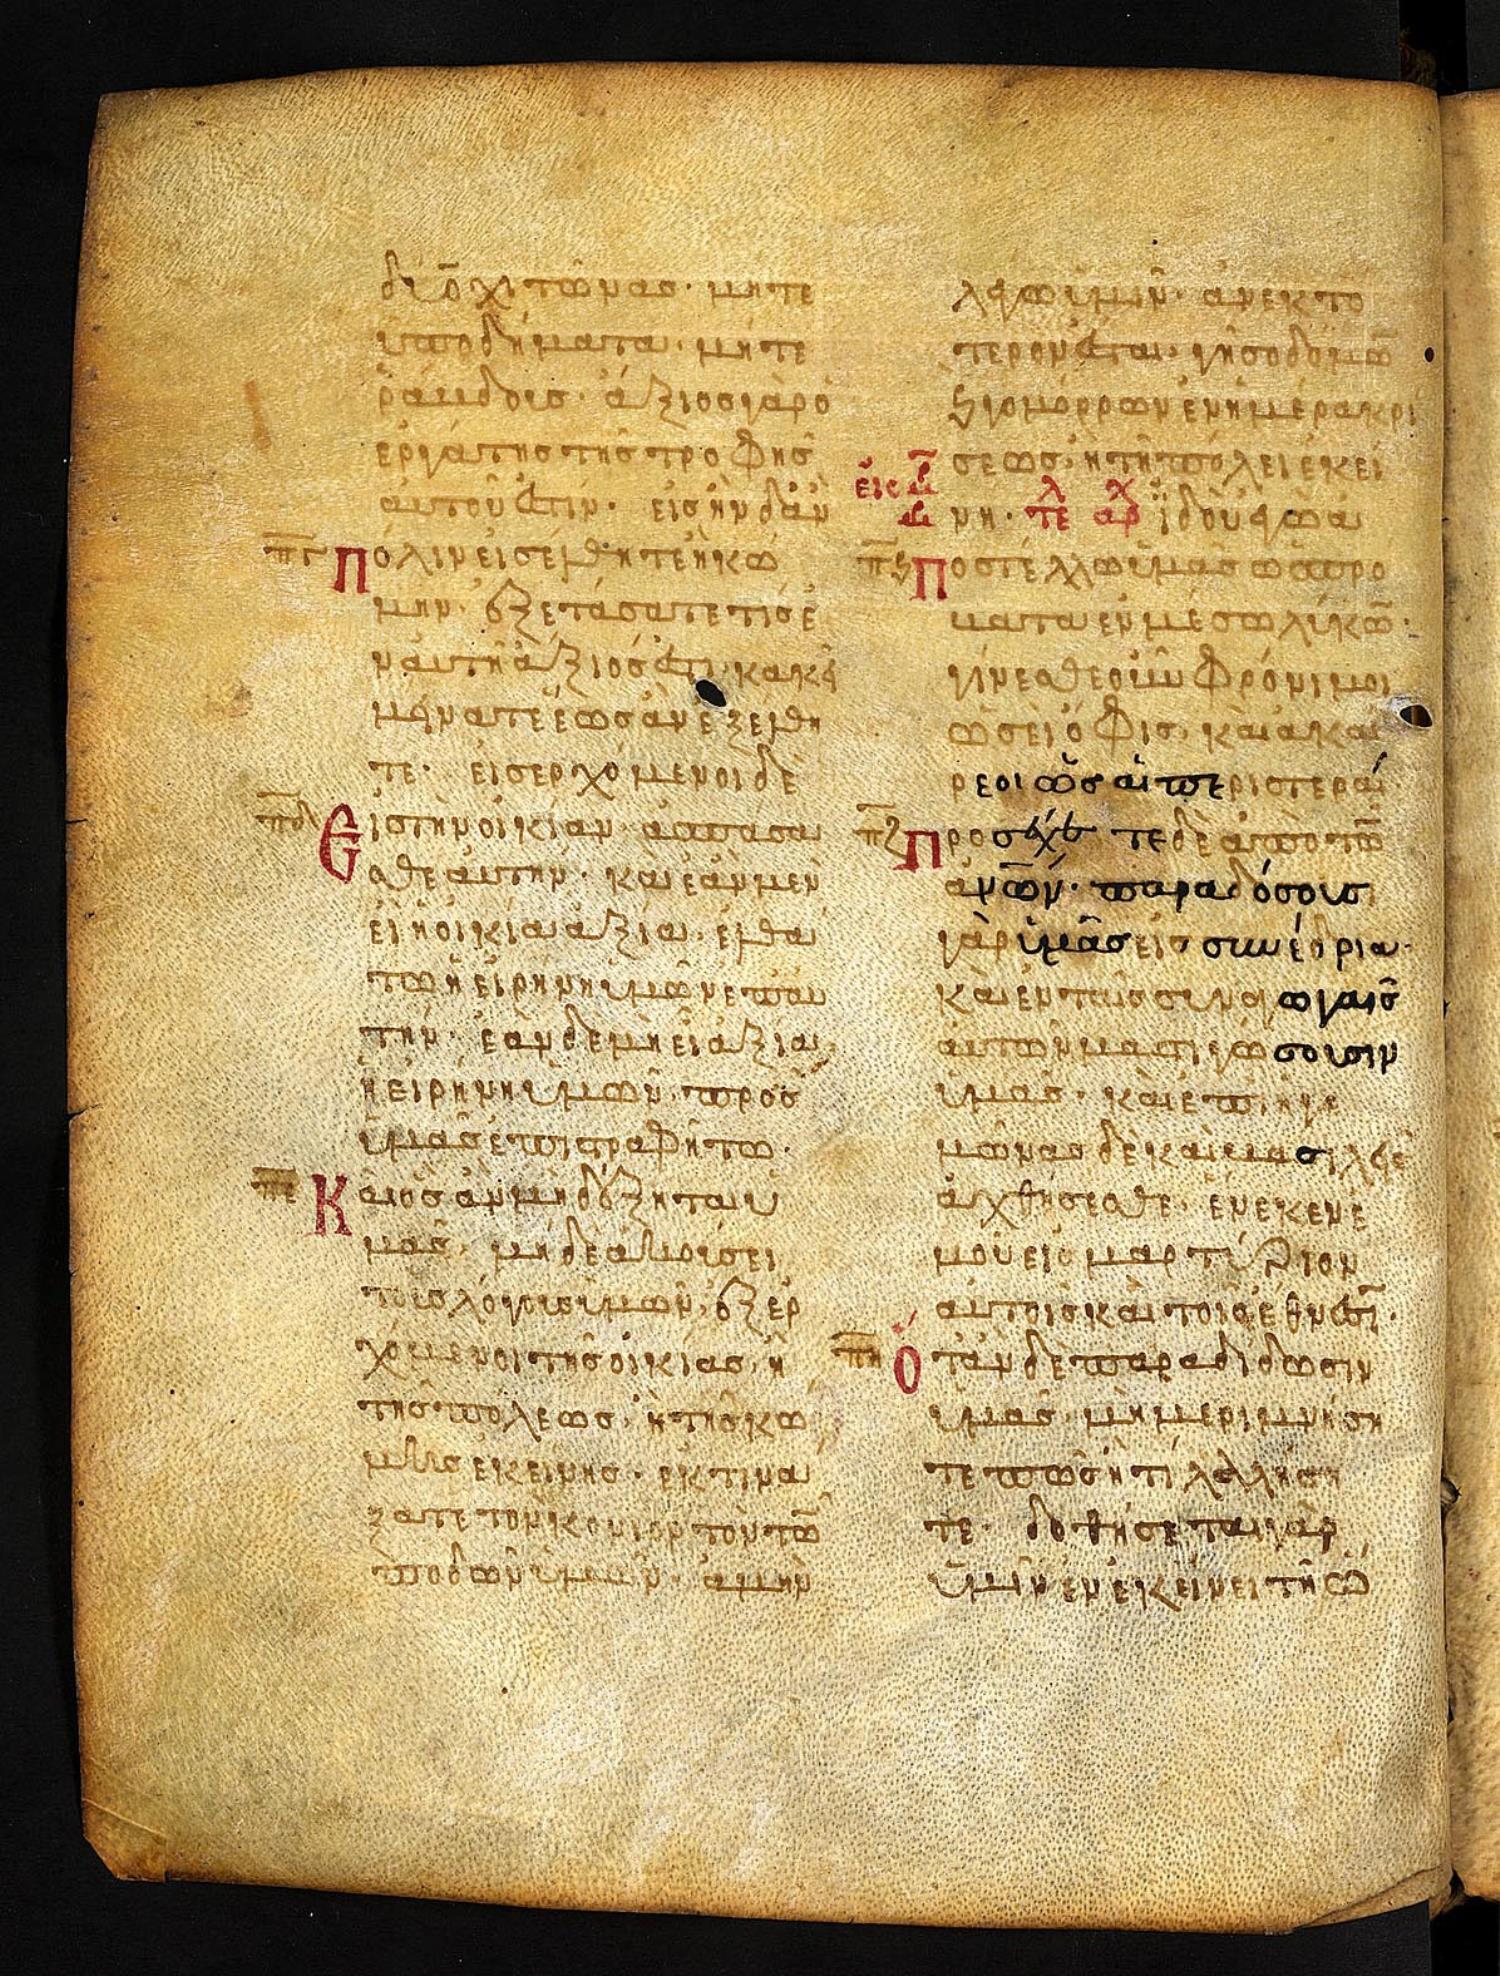 δύο χιτῶνας· μήτε
ὑποδήματα· μήτε
ῥάβδους· ἄξιος γὰρ ὁ
ἐργάτης τῆς τροφῆς
αὐτοῦ ἐστιν· εἰς ἣν δ' ἂν
πγ Πόλιν εἰσέλθητε ἢ κώ
μην· ἐξετάσατε τίς ἐ
ν αὐτῇ ἄξιός ἐστι· κακεῖ
μείνατε ἕως ἂν ἐξέλθη
τε· εἰσερχόμενοι δὲ
πδ Εἰς τὴν οἰκίαν· ἀσπάσα
σθε αὐτήν· καὶ ἐὰν μὲν
εἰ ἡ οἰκία ἀξία· ἐλθά
τω ἡ εἰρήνη ὑμῶν ἐπ' αὐ
τήν· ἐὰν δὲ μὴ εἰ ἀξία,
ἡ εἰρήνη ὑμῶν· πρὸς
ὑμᾶς ἐπιστραφήτω·
πε Καὶ ὃς ἂν μὴ δέξηται ὑ
μᾶς· μηδὲ ἀκούσει
τοὺς λόγους ὑμῶν, ἐξερ
χόμενοι τῆς οἰκίας, ἢ
τῆς πόλεως· ἢ τῆς κώ
μης ἐκείνης· ἐκτινά
ξατε τὸν κονιορτὸν τῶ̅
ποδῶν ὑμῶν· ἀμὴν
λέγω ὑμῖν· ἀνεκτό
τερον ἔσται· γῆ σοδόμω̅
ϗ γομόρρων ἐν ἡμέρα κρί
σεως· ἢ τῇ πόλει ἐκεί
νη· τε αρ ἰδοὺ ἐγὼ ἀ
πϛ Ποστέλλω ὑμᾶς ὡς πρό
βατα ἐν μέσω λύκω̅·
γίνεσθε οὖν φρόνιμοι
ὡσεὶ ὄφις· καὶ ἀκαί
ρεοι ὡς αἱ περιστεραί·
πζ Προσέχετε δὲ ἀπὸ τῶ̅
ἀν̅ω̅ν· παραδόσουσι
γὰρ ὑμᾶς εἰς συνέδρια·
καὶ ἐν ταῖς συναγωγαῖς
αὐτῶν μαστιγώσουσιν
ὑμᾶς· καὶ ἐπὶ ἡγε
μόνας δὲ καὶ βασιλεῖς
ἀχθήσεσθε· ἕνεκεν ἐ
μοῦ εἰς μαρτύριον
αὐτοῖς καὶ τοῖς ἔθνεσι̅·
πη Ὅταν δὲ παραδιδῶσιν
ὑμᾶς· μὴ μεριμνήση
τε πῶς ἢ τί λαλήση
τε· δοθήσεται γὰρ
ὑμῖν ἐν ἐκείνει τῇ ὥ